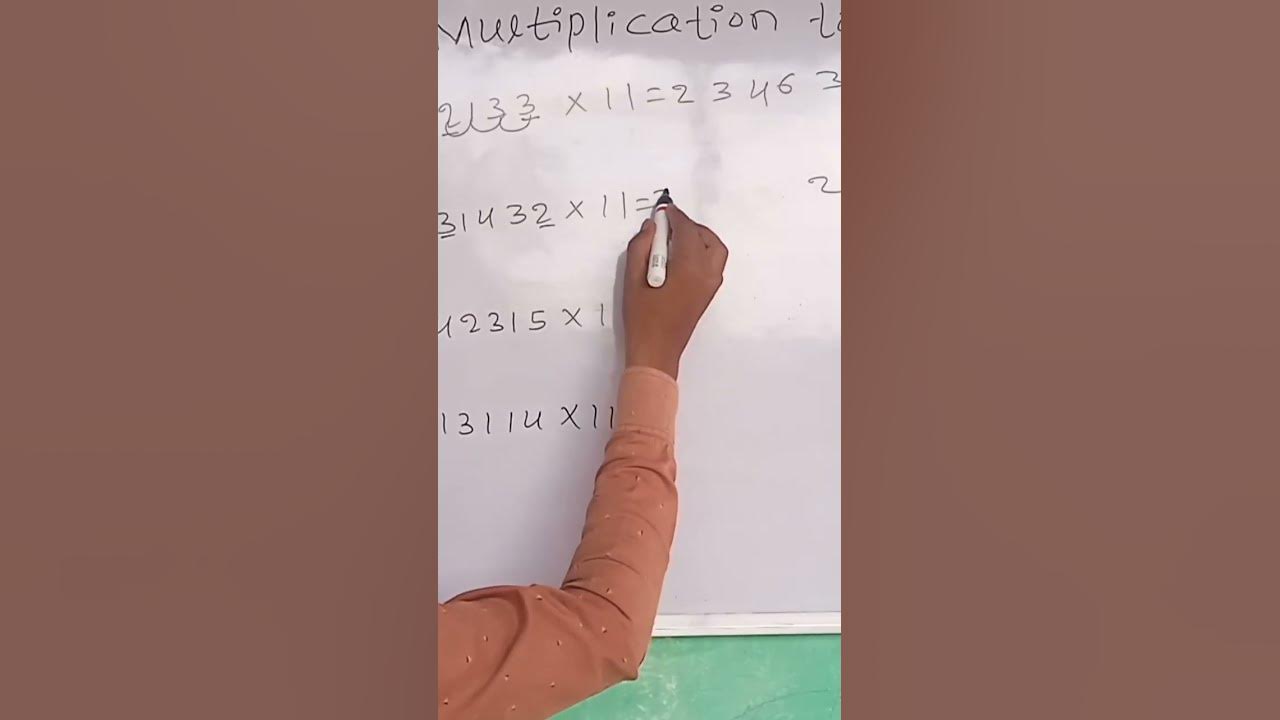 Multiplication
2133 × 11 = 23463
2
31432 × 11 =
42315 × 1
13114 × 11